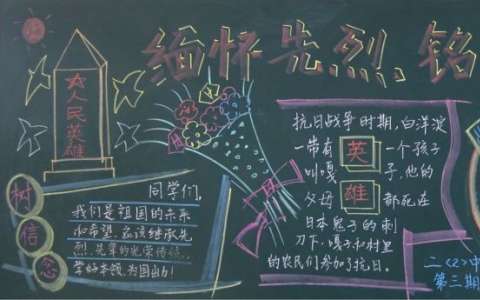 缅怀先烈、铭
人民英雄
树信念
同学们,
我们是祖国的未来
和希望,应该继承先
烈、先辈的光荣传统,
学好本领,为国出力!
抗日战争时期,白洋淀
一带有 英 一个孩子
叫嘎 子,他的
父母 雄 都死在
日本鬼子的刺
刀下,嘎子和村里
的农民们参加了抗日。
二〈2〉中
第三期